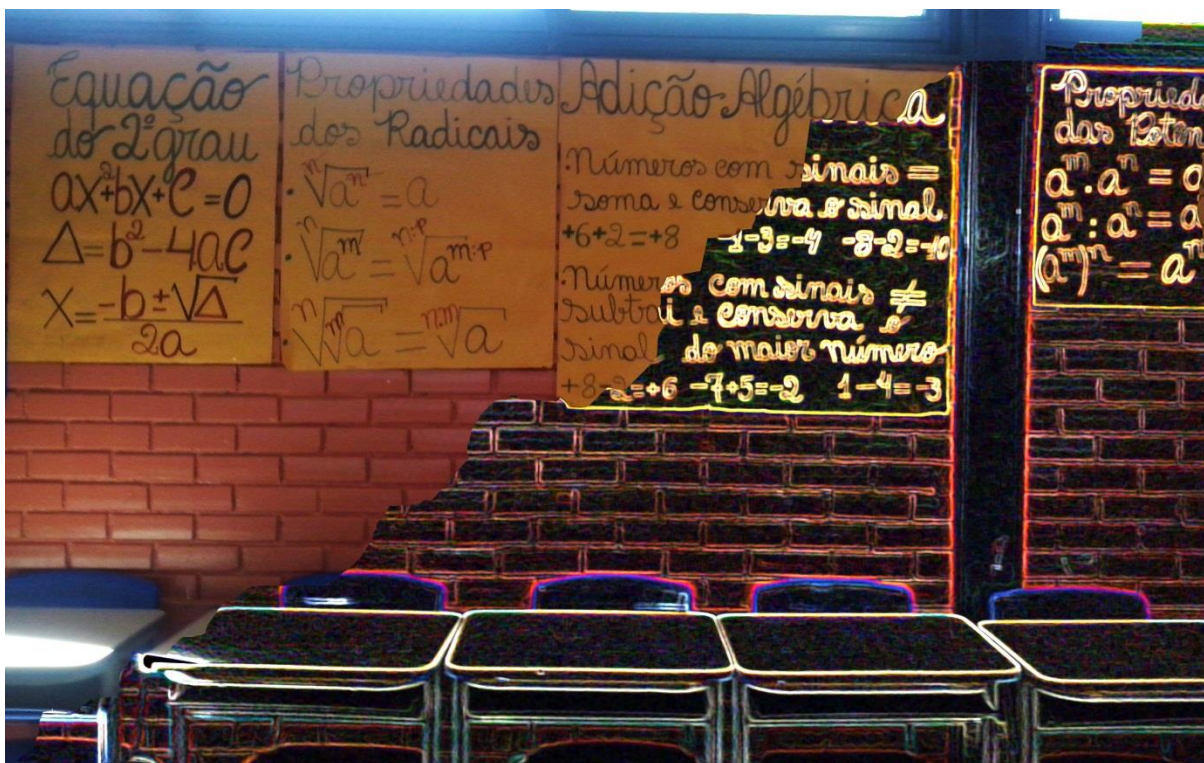 Equação
do 2º grau
ax²+bx+c=0
Δ=b²-4ac
x=-b±√Δ
2a
Propriedades
dos Radicais
· ⁿ√aⁿ = a
· ⁿ√aᵐ = ⁿ·ᵖ√aᵐ·ᵖ
· ⁿ√ᵐ√a = ⁿ·ᵐ√a
Adição Algébrica
.Números com sinais =
soma e conserva o sinal.
+6+2=+8 -1-3=-4 -8-2=-10
.Números com sinais ≠
subtrai e conserva o
sinal do maior número
+8-2=+6 -7+5=-2 1-4=-3
aᵐ.aⁿ = a
aᵐ:aⁿ = a
(aᵐ)ⁿ = aᵐ